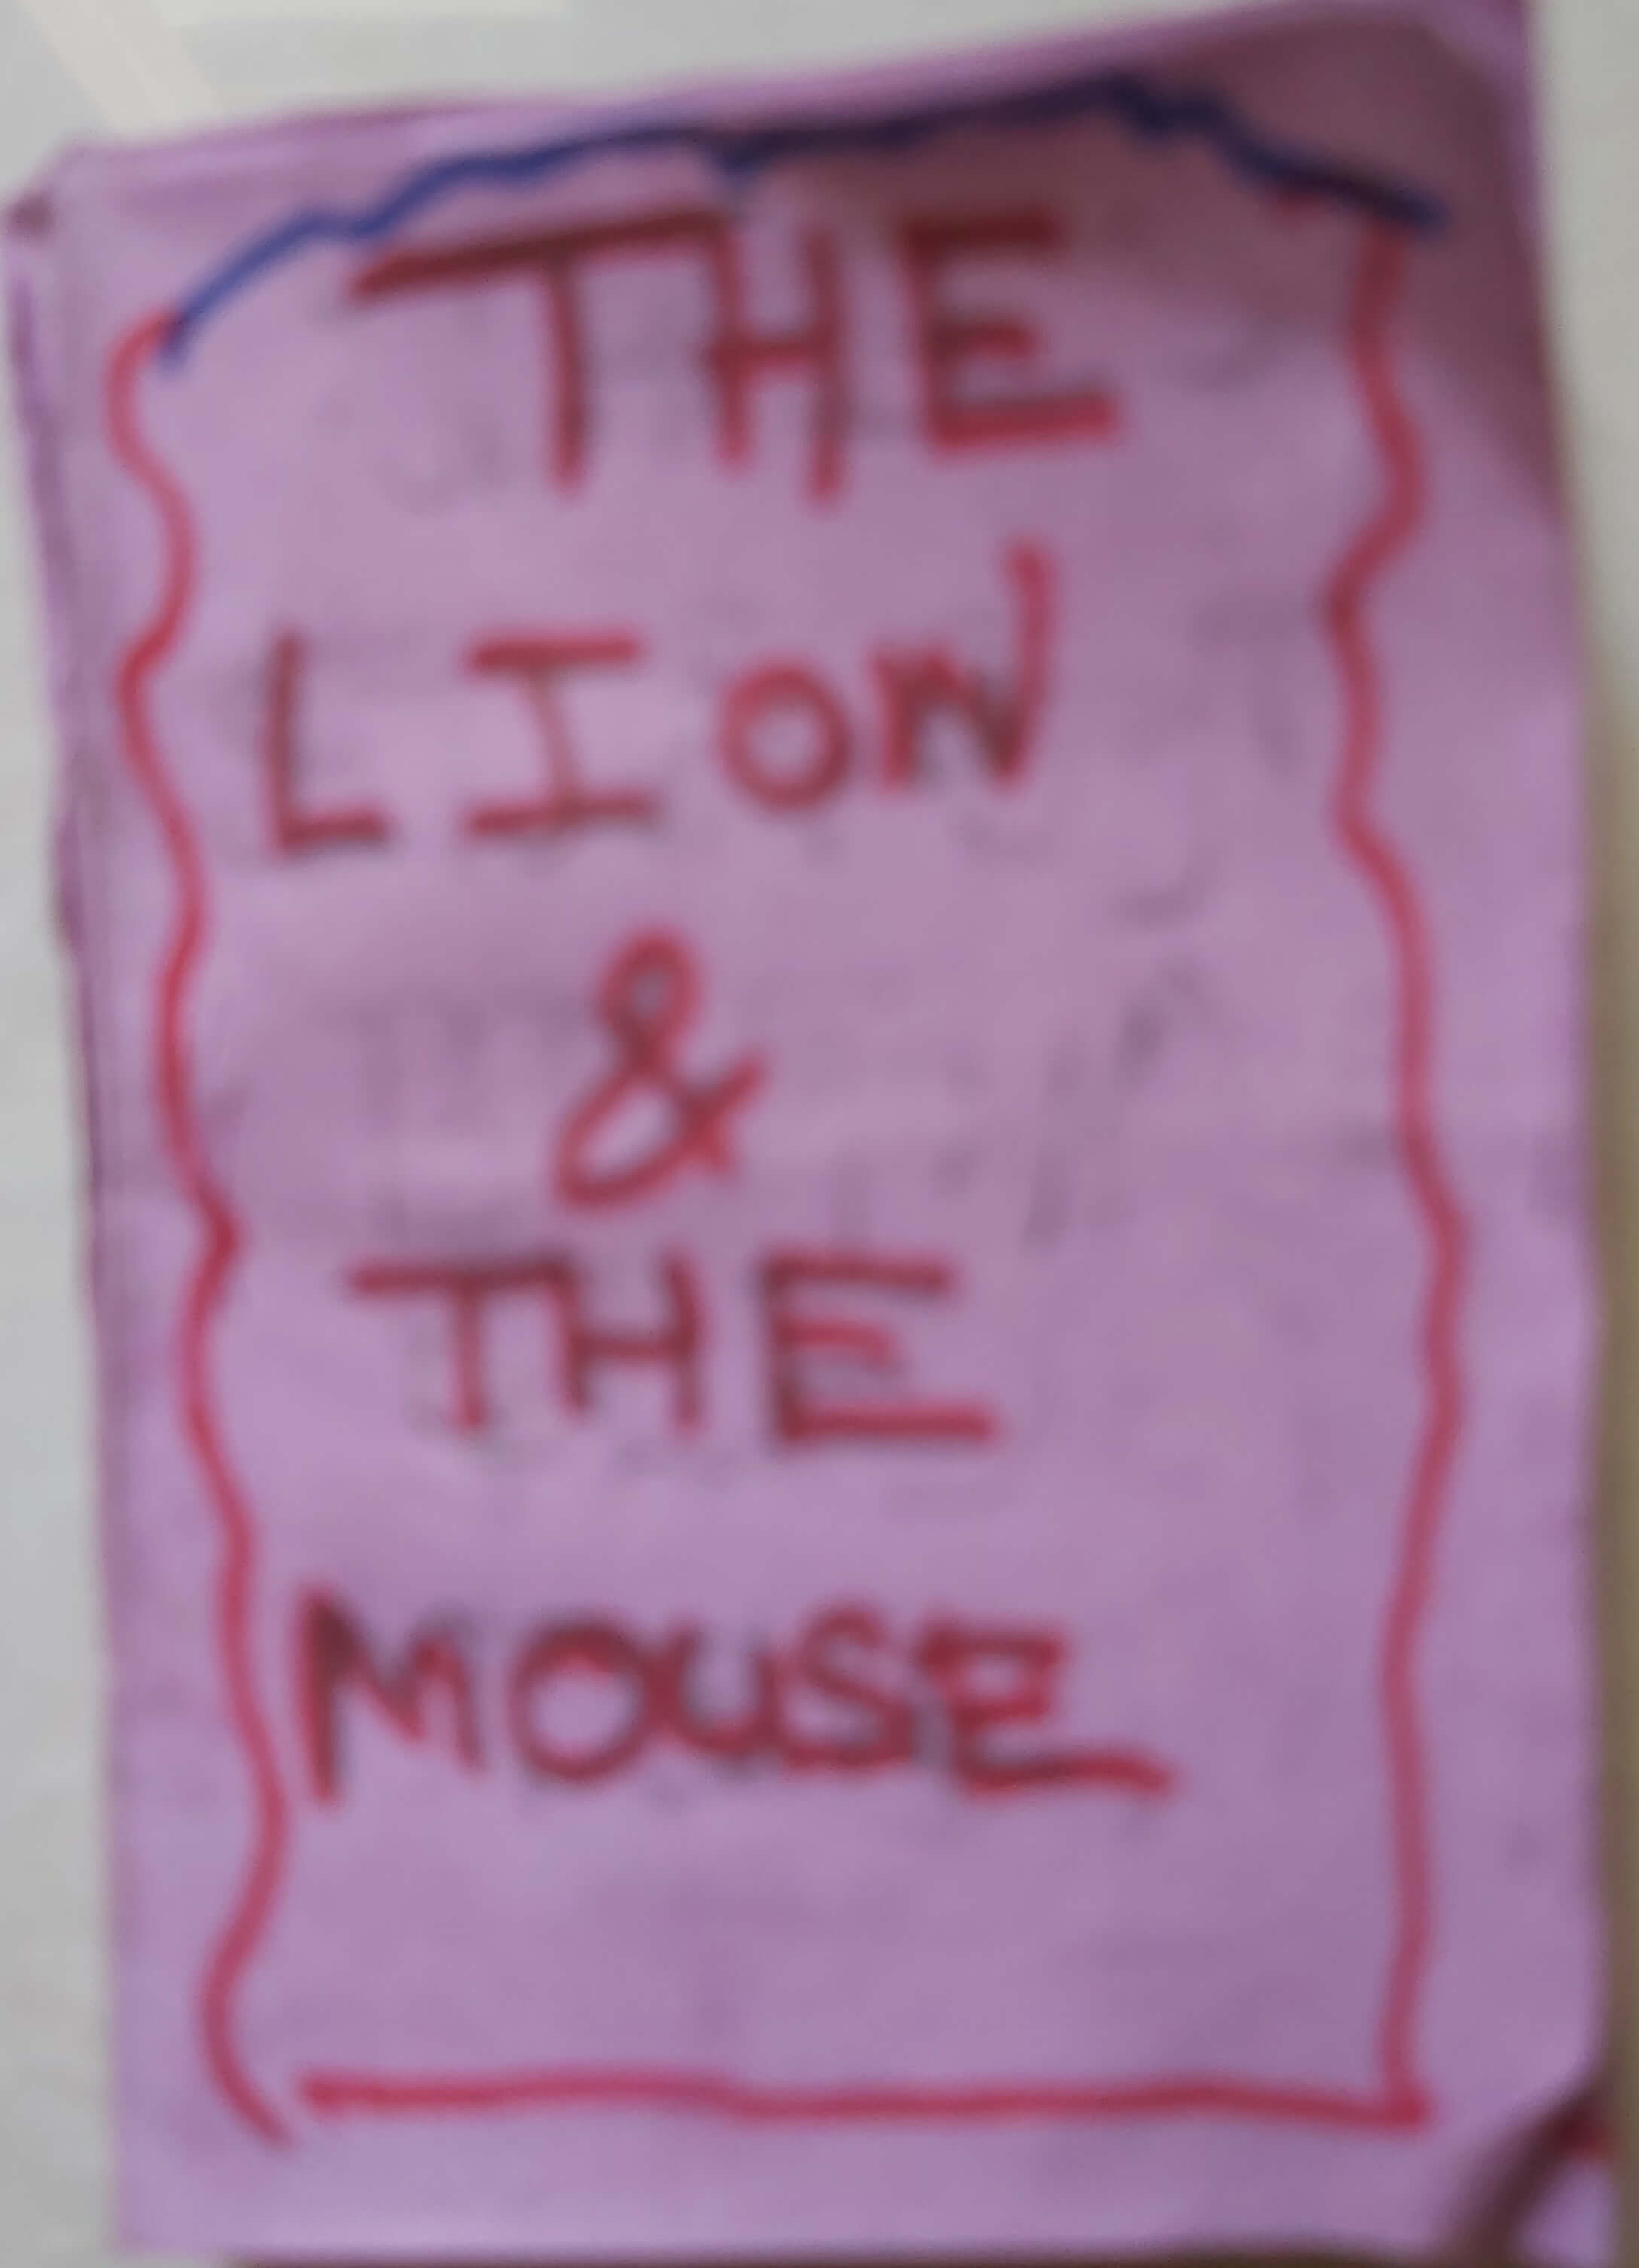 THE
LION
&
THE
MOUSE